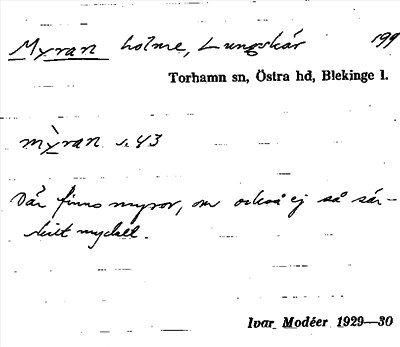 Myran holme, Lungskär 199
Torhamn sn, Östra hd, Blekinge l.
mỳran s. 43
Där finns myror, om också ej så sär-
skilt mycket.
Ivar Modéer 1929—30